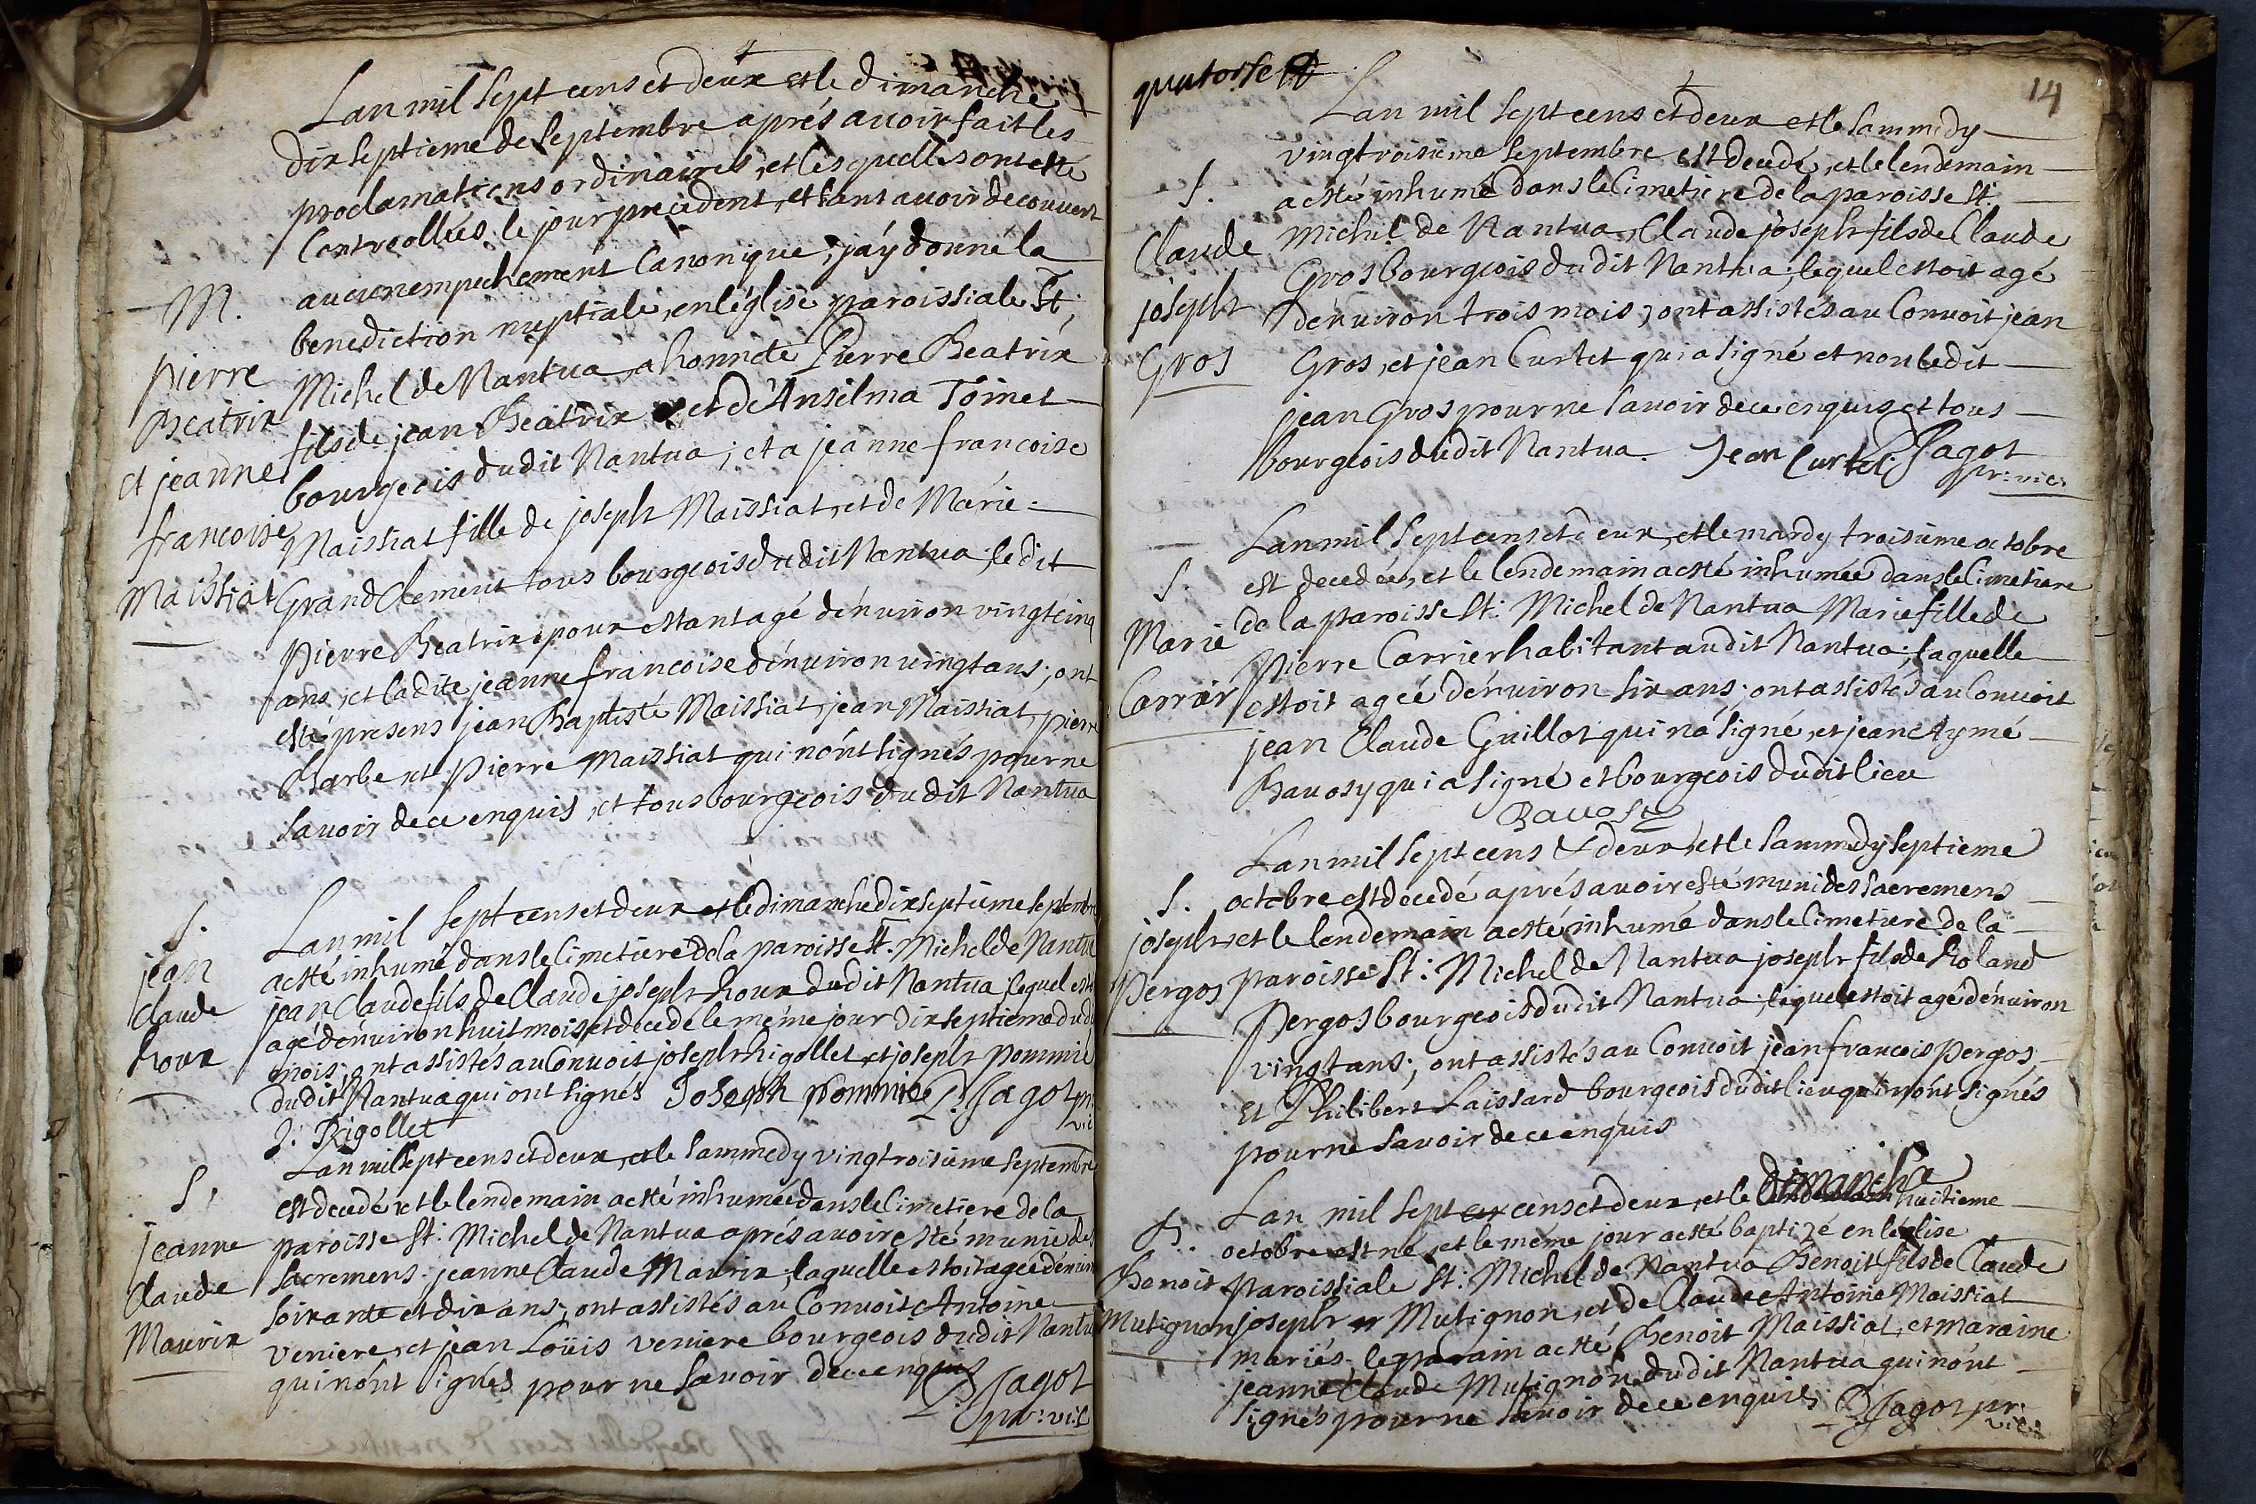 Lan mil sept cens et deux et le dimanche
dix septieme de septembre aprés auoir fait les
proclamations ordinaires, et lesquelles ont esté
Controollées le jour precedent, et sans auoir decouuert
aucun empechement Canonique, j'aÿ donné la
M.
benediction nuptiale, en l'église paroissiale St;
pierre
Michel de Nantua, a honnete Pierre Beatrix
Beatrix
fils de jean Beatrix et d'Anselma Toinet
et jeanne
bourgeois dudit Nantua; et a jeanne francoise
francoise
Maissiat fille de joseph Maissiat, et de Marie
Maissiat
Grand Clement tous bourgeois dudit Nantua, le dit
Pierre Beatrix pour estant agé d'enuiron vingt cinq
ans, et ladite jeanne francoise d'enuiron vingt ans; ont
esté presens jean Baptiste Maissiat, jean Maissiat, pierre
Barbe, et Pierre Maissiat qui n'ont signés pour ne
sauoir de ce enquis, et tous bourgeois dudit Nantua
S.
jean
claude
houx
Lan mil sept cens et deux et le dimanche dix septieme septembre
a esté inhumé dans le Cimetiere de la paroisse St. Michel de Nantua
jean Claude fils de Claude joseph houx dudit Nantua, lequel estoit
agé d'enuiron huit mois et decedé le méme jour dix septieme dudit
mois; ont assistés au Conuoit joseph Rigollet, et joseph pommie
dudit Nantua qui ont signés Joseph Pommie Jagot pr:
vic
J: Rigollet
S.
jeanne
Claude
Maurix
Lan mil sept cens et deux, et le sammedy vingtroisieme septembre
est decedé et le lendemain a esté inhumée dans le Cimetiere de la
paroisse St: Michel de Nantua aprés auoir esté munie des
sacremens jeanne Claude Maurix, laquelle estoit agée d'enuiron
soixante et dix ans, ont assistés au Conuoit Antoine
veniere, et jean Loüis veniere bourgeois dudit Nantua
qui n'ont signés pour ne sauoir de ce enquis
Jagot
pr: vic
quatorse
14
Lan mil sept cens et deux et le sammedy
vingtroisieme septembre est decedé, et le lendemain
S.
a esté inhumé dans le Cimetiere de la paroisse St:
Claude
Michel de Nantua, Claude joseph fils de Claude
Gros bourgeois dudit Nantua; lequel estoit agé
joseph
d'enuiron trois mois; ont assistés au Conuoit jean
Gros
Gros, et jean Curtet qui a signé et non ledit
jean Gros pour ne sauoir de ce enquis et tous
bourgeois dudit Nantua. Jean Curtet Jagot
pr: vic:
Lan mil sept cens et deux, et le mardy troisieme octobre
S.
est decedée, et le lendemain a esté inhumée dans le Cimetiere
Marie
de la paroisse St: Michel de Nantua Marie fille de
Pierre Carrier habitant audit Nantua; laquelle
Carrier
estoit agée d'enuiron six ans; ont assistés au Conuoit
jean Claude Guillot qui n'a signé, et jean Aymé
Bauosy qui a signé et bourgeois dudit lieu
Bauosy
Lan mil sept cens & deux, et le sammedy septieme
S.
octobre est decedé aprés auoir esté muni des sacremens
joseph
et le lendemain a esté inhumé dans le Cimetiere de la
Pergos
paroisse St: Michel de Nantua joseph fils de Roland
Pergos bourgeois dudit Nantua; lequel estoit agé d'enuiron
vingt ans; ont assistés au Conuoit jean francois Pergos,
et Philibert Laissard bourgeois dudit lieu qui n'ont signés
pour ne sauoir de ce enquis
dimanche
Lan mil sept cens et deux, et le huitieme
B.
octobre est né, et le méme jour a esté baptizé en l'église
Benoit
paroissiale St: Michel de Nantua Benoit fils de Claude
Mutignon
joseph Mutignon, et de Claude Antoine Maissiat
mariés. le parain a esté Benoit Maissiat, et maraine
jeanne Claude Mutignon dudit Nantua qui n'ont
signés pour ne sauoir de ce enquis Jagot pr:
vic: